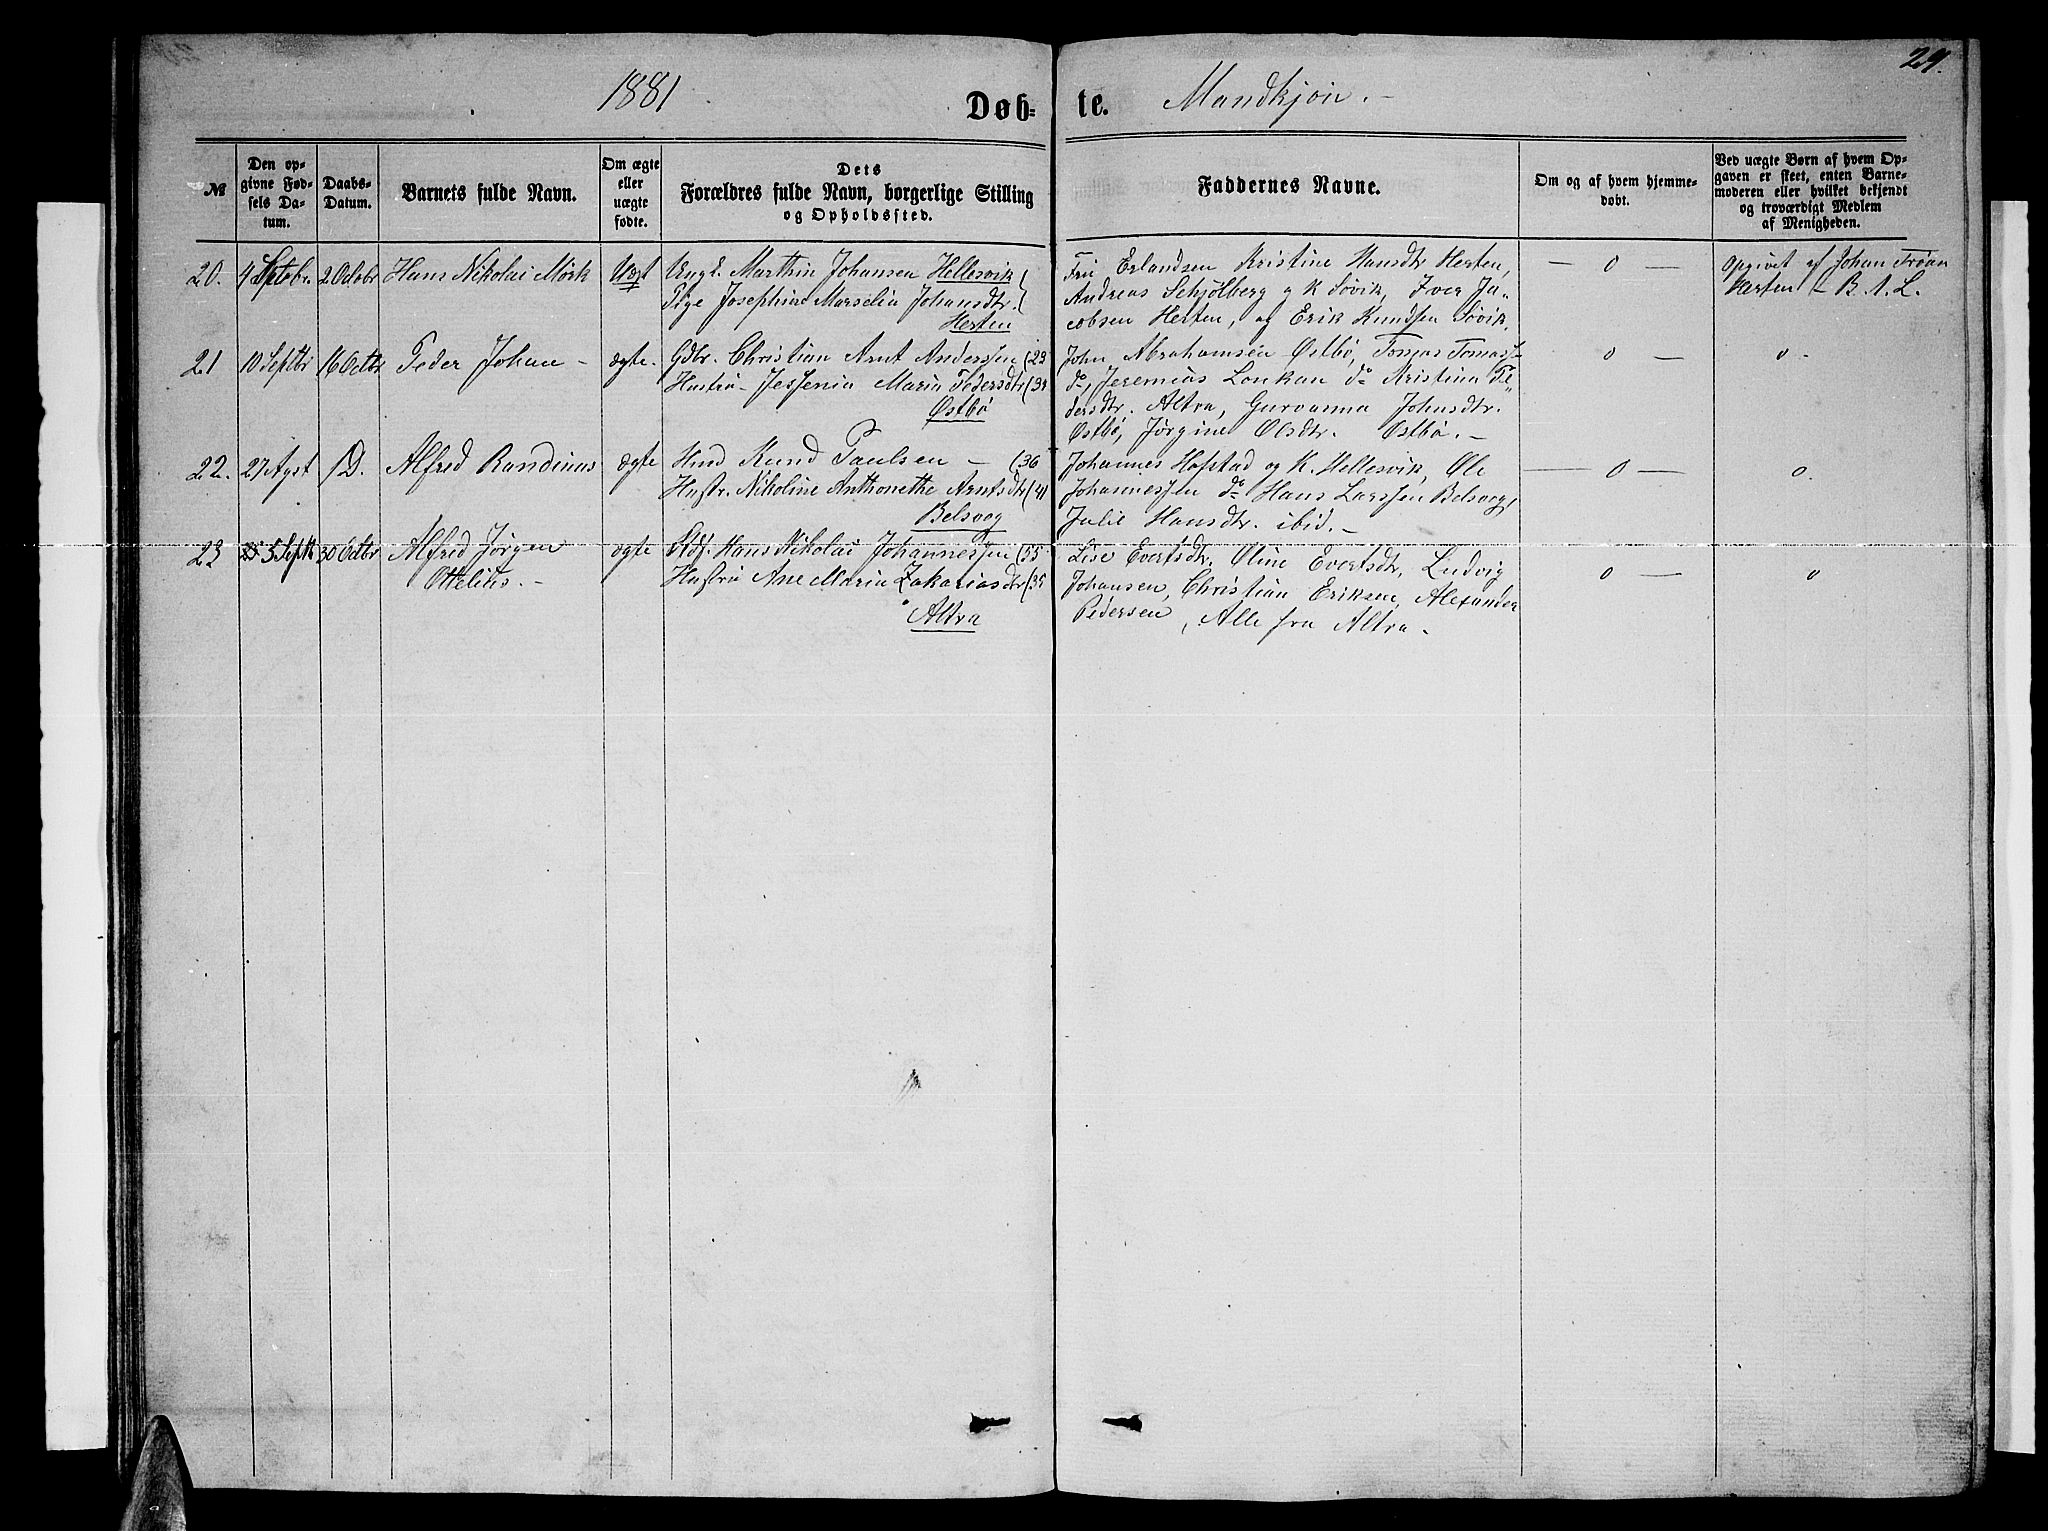 29.
1881
Døb-
te.
Mandkjøn. -
№
Den op-
givne Fød-
sels Da-
tum.
Daabs-
Datum.
Barnets fulde Navn.
Om ægte
eller
uægte
fødte.
Dets
Forældres fulde Navn, borgerlige Stilling
og Opholdssted.
Faddernes Navne.
Om og af hvem hjemme-
døbt.
Ved uægte Børn af hvem Op-
gaven er skeet, enten Barne-
moderen eller hvilket bekjendt
og troværdigt Medlem
af Menigheden.
20.
4 Septbr.
2 Octobr
Hans Nikolai Mörk
Uægt
Ungk. Marthin Johansen Hellesvik
Pige Josephine Marselia Johansdtr.
Herten
Fru Erlandsen Kristine Hansdtr Herten,
Andreas Schjölberg og K Søvik, Iver Ja„
cobsen Herten, og Erik Knudsen Søvik.
— 0 —
Opgivet af Johan Tröan
Herten - B. A. L.
21
10 Septbr
16 Octbr
Peder Johan -
ægte.
Gdbr. Christian Arnt Anderssen (29
Hustru - Jessenia Maria Pedersdtr (38
Østbö
John Abrahamsen Østbö, Tomas Tomass-
do, Jeremias Lonkan do Kristina Pe„
dersdtr. Altra, Gurvanna Johnsdtr.
Østbö, Jørgine Olsdtr. Østbö. -
0 —
0 -
22.
27 Agst
/D.
Alfred Randinus
ægte
Hmd Knud Paulsen - (36
Hustr. Nikoline Anthonethe Arntsdtr (41
Belsvog
Johannes Hopstad og K. Hellesvik, Ole
Johannessen do Hans Larssen Belsvog,
Julie Hansdtr. ibid. -
— 0 —
0.
23
5 Septb
30 Octbr
Alfred Jörgen
Ottelius. -
ægte
Hans Nikolai Johannessen (55
Hustru Ane Maria Zakariasdtr (35
Altra
Lise Evertsdtr. Oline Evertsdtr, Ludvig
Johansen, Christian Eriksen, Alexander
Pedersen, Alle fra Altra.
0 —
0